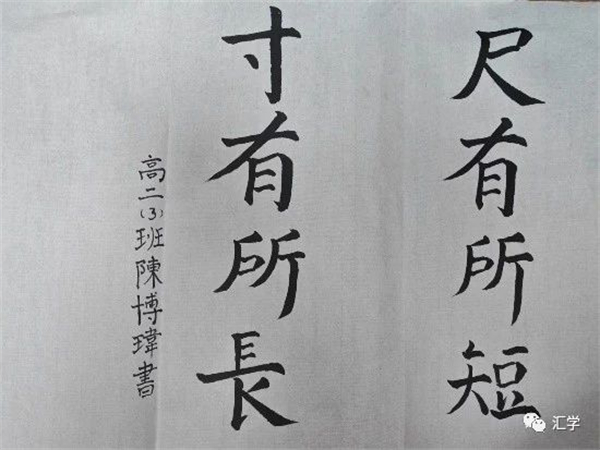 尺有所短
寸有所長
高二(3)班陳博瑋書
汇学